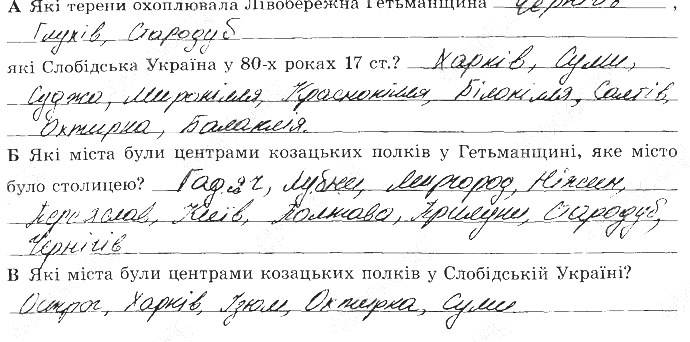 А Які терени охоплювала Лівобережна Гетьманщина Чернігів,
Глухів, Стародуб
які Слобідська Україна у 80-х роках 17 ст.? Харків, Суми,
Суджа, Миропілля, Краснопілля, Білопілля, Салтів,
Охтирка, Балаклія.
Б Які міста були центрами козацьких полків у Гетьманщині, яке місто
було столицею? Гадяч, Лубни, Миргород, Ніжин,
Переяслав, Київ, Полтава, Прилуки, Стародуб,
Чернігів
В Які міста були центрами козацьких полків у Слобідській Україні?
Острог, Харків, Ізюм, Охтирка, Суми